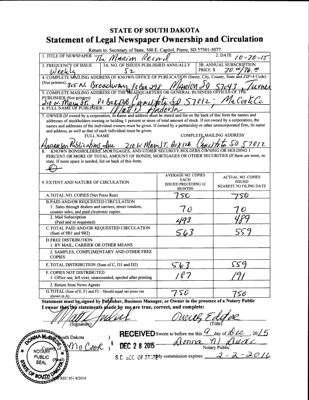 STATE OF SOUTH DAKOTA
Statement of Legal Newspaper Ownership and Circulation
Return to: Secretary of State, 500 E. Capitol, Pierre, SD 57501-5077
1. TITLE OF NEWSPAPER The Marion Record
2. DATE 10-30-15
3. FREQUENCY OF ISSUE Weekly
3A. NO. OF ISSUES PUBLISHED ANNUALLY 52
3B. ANNUAL SUBSCRIPTION PRICE $
4. COMPLETE MAILING ADDRESS OF KNOWN OFFICE OF PUBLICATION (Street, City, County, State and ZIP+4 Code)
(Not printers) Broadway, Box 298 Marion SD 57043 Turner
5. COMPLETE MAILING ADDRESS OF THE HEADQUARTERS OR GENERAL BUSINESS OFFICES OF THE
PUBLISHER (Not printer)
210 W Main St. Canistota SD 57012; McCook Co.
6. FULL NAME OF PUBLISHER: Matt Anderson
7. OWNER (If owned by a corporation, its name and address must be stated and also the names and
addresses of stockholders owning or holding 1 percent or more of total amount of stock. If not owned by a corporation, the
names and addresses of the individual owners must be given. If owned by a partnership or other unincorporated firm, its name
and address, as well as that of each individual must be given.
FULL NAME COMPLETE MAILING ADDRESS
Anderson Publications, Inc. 210 W Main St. Box 128 Canistota SD 57012
8. KNOWN BONDHOLDERS, MORTGAGES, AND OTHER SECURITY HOLDERS OWNING OR HOLDING 1
PERCENT OR MORE OF TOTAL AMOUNT OF BONDS, MORTGAGES OR OTHER SECURITIES (If there are none, so
state. If more space is needed, list on back of this form.
9. EXTENT AND NATURE OF CIRCULATION
AVERAGE NO. COPIES EACH ISSUED PRECEDING 12 MONTHS
ACTUAL NO. COPIES ISSUED NEAREST TO FILING DATE
A. TOTAL NO. COPIES (Net Press Run) 750 750
B. PAID AND/OR REQUESTED CIRCULATION
1. Sales through dealers and carriers, street vendors,
counter sales, and paid electronic copies. 70 70
2. Mail Subscription
(Paid and or requested) 493 489
C. TOTAL PAID AND/OR REQUESTED CIRCULATION
(Sum of 9B1 and 9B2) 563 559
D. FREE DISTRIBUTION
1. BY MAIL, CARRIER OR OTHER MEANS
2. SAMPLES, COMPLIMENTARY AND OTHER FREE
COPIES
E. TOTAL DISTRIBUTION (Sum of C, D1 and D2) 563 559
F. COPIES NOT DISTRIBUTED
1. Office use, left over, unaccounted, spoiled after printing 187 191
2. Return from News Agents
G. TOTAL (Sum of E, F1 and F2 - Should equal net press run
shown in A) 750 750
Statement must be signed by Publisher, Business Manager, or Owner in the presence of a Notary Public
I swear that the statements made by me are true, correct, and complete:
(Signature) (Title)
South Dakota
RECEIVED Sworn to before me this 9 day of Dec 2015
McCook DEC 28 2015 Notary Public
My commission expires 2-2-2016
NOTARY
PUBLIC
SEAL
SOUTH DAKOTA
REC 051 8/2014